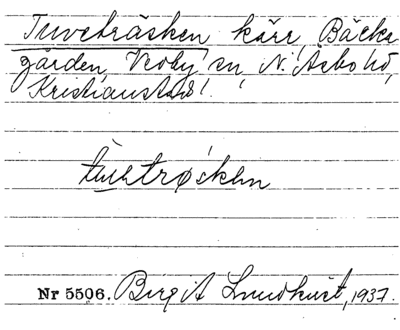 Tuveträsken kärr, Bäcks
gården, Vedby sn, N. Åsbo hd,
Kristianstads l.
tuvetrøsken
Nr 5506. Birgit Lundkvist, 1937.